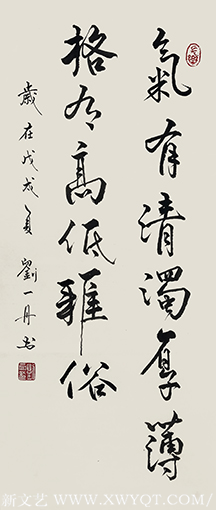 氣有清濁厚薄
格有高低雅俗
歲在戊戌夏劉一丹書
新文艺 WWW.XWYQT.COM/